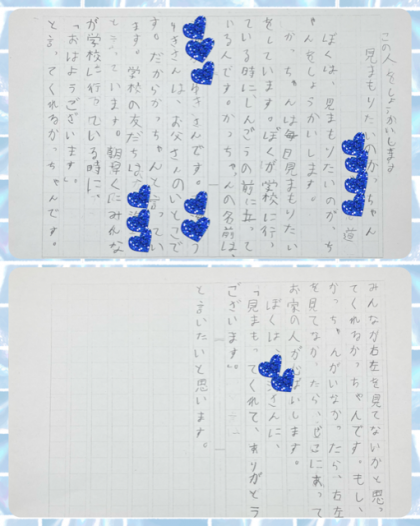 この人をしょうかいします
見まもりたいのかっちゃん
道
ぼくは、見まもりたいのかっち
ゃんをしょうかいします。
かっちゃんは毎日見まもりたい
をしています。ぼくが学校に行っ
ている時に、しんごうの前に立って
いるんです。かっちゃんの名前は、
きさんです。う
きさんは、お父さんのいとこで
す。だからかっちゃんと言ってい
ます。学校の友だちは、
と言っています。朝早くにみんな
が学校に行っている時に、
「おはようございます。」
と言ってくれるかっちゃんです。
みんなが右左を見てないかと思っ
てくれるかっちゃんです。もし、
かっちゃんがいなかったら、右左
を見てなかったら、じこにあって
お家の人が心ぱいします。
ぼくはさんに、
「見まもってくれて、ありがとう
ございます。」
と言いたいと思います。